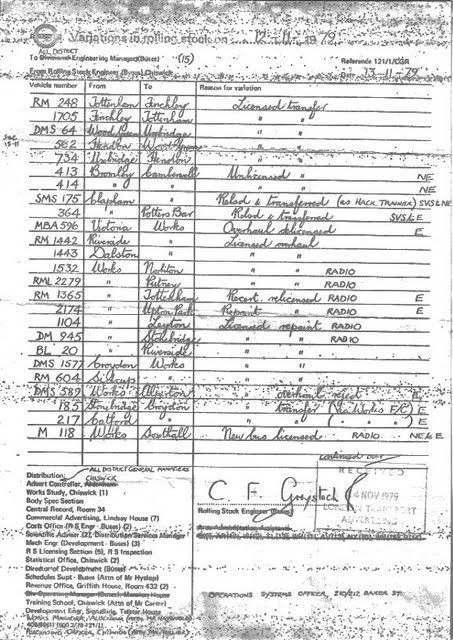 Variations in rolling stock on 12 - 11 - 1979
ALL DISTRICT
To Divisional Engineering Manager(Buses) (15)
Reference 121/1/CGR
From Rolling Stock Engineer (Buses) Chiswick
13 - 11 - 79
Vehicle number From To Reason for variation
RM 248 Tottenham Finchley Licensed transfer
1705 Finchley Tottenham " "
DMS 64 Wood Green Uxbridge " "
See 15-11
582 Hendon Wood Green " "
734 Uxbridge Hendon " "
413 Bromley Camberwell Unlicensed " NE
414 " " " NE
SMS 175 Clapham " Relsd & transferred (as HACK TRAINER) SVS & NE
364 " Potters Bar Relsd & transferred SVS & E
MBA 596 Victoria Works Overhaul delicensed E
RM 1442 Riverside " Licensed overhaul
1443 Dalston " " "
1532 Works Norbiton " " RADIO
RML 2279 " Putney " " RADIO
RM 1365 " Tottenham Recert. relicensed RADIO E
2174 " Upton Park Repaint " RADIO E
1104 " Leyton Licensed repaint RADIO
DM 945 " Stonebridge " " RADIO
BL 20 " Riverside " "
DMS 1577 Croydon Works " "
RM 604 Sidcup " " "
DMS 589 Works Alperton " overhaul reject E
185 Stonebridge Croydon " transfer (Via Works F/R) E
217 Catford " " " ( " " " ) E
M 118 Works Southall New bus licensed RADIO NE & E
continued over
Distribution: ALL DISTRICT GENERAL MANAGERS
CHISWICK
Advert Controller, Aldenham
Works Study, Chiswick (1)
Body Spec Section
Central Record, Room 34
Commercial Advertising, Lindsay House (7)
Costs Office (R S Engr - Buses) (2)
Scientific Adviser (2), Distribution Services Manager
Mech Engr (Development - Buses) (3)
R S Licensing Section (5), R S Inspection
Statistical Office, Chiswick (2)
Director of Development (Buses)
Schedules Supt - Buses (Attn of Mr Hyslop)
Revenue Office, Griffith House, Room 432 (2)
Training School, Chiswick (Attn of Mr Carter)
Development Engr, Signalling, Telstar House
C F Graystock
Rolling Stock Engineer (Buses)
RECEIVED
14 NOV 1979
LONDON TRANSPORT
ADVERTISING
OPERATIONS SYSTEMS OFFICER, 210/212 BAKER ST.